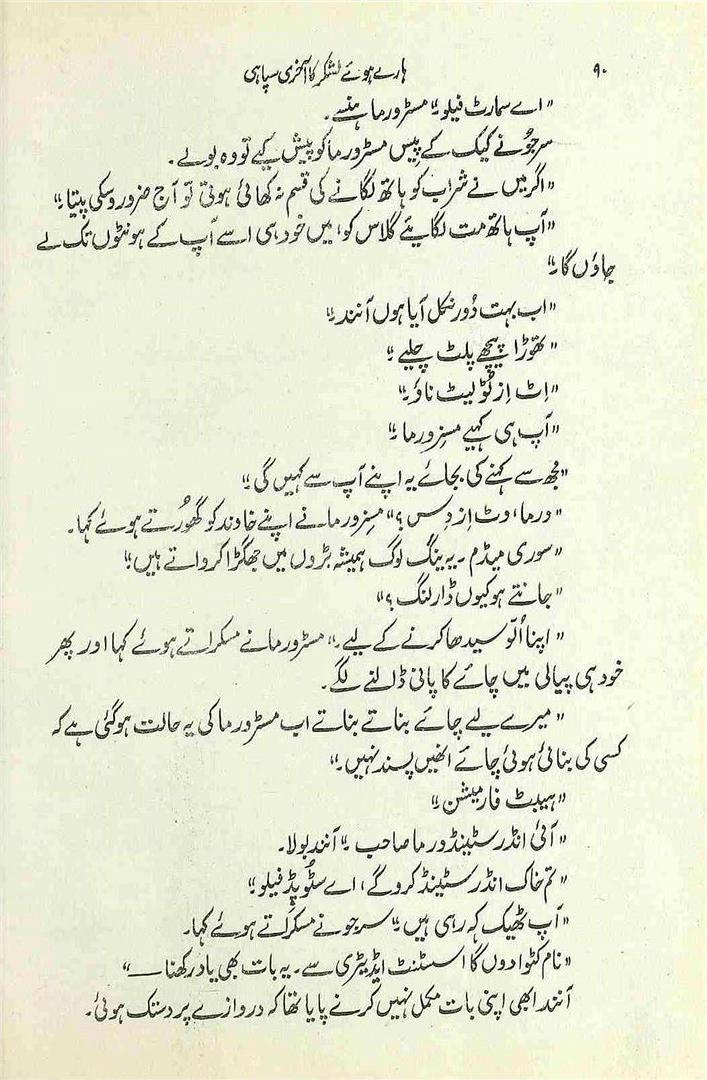 ۹۰ ہارے ہوئے لشکر کا آخری سپاہی
"اے سمارٹ فیلو۔" مسٹر ورما ہنسے۔
سرجُو نے کیک کے پیس مسٹر ورما کو پیش کیے تو وہ بولے۔
"اگر میں نے شراب کو ہاتھ لگانے کی قسم نہ کھائی ہوتی تو آج ضرور وسکی پیتا۔"
"آپ ہاتھ مت لگایئے گلاس کو، میں خود ہی اسے آپ کے ہونٹوں تک لے
جاؤں گا۔"
"اب بہت دُور نکل آیا ہوں آنند۔"
"تھوڑا پیچھے پلٹ چلیے۔"
"اِٹ اِز ٹُو لیٹ ناؤ۔"
"آپ ہی کہیے مسز ورما۔"
"مجھ سے کہنے کی بجائے یہ اپنے آپ سے کہیں گی۔"
"ورما، وٹ اِز دِس؟" مسز ورما نے اپنے خاوند کو گھورُتے ہوئے کہا۔
"سوری میڈم۔ یہ ینگ لوگ ہمیشہ بڑوں میں جھگڑا کرواتے ہیں۔"
"جانتے ہو کیوں ڈارلنگ؟"
"اپنا اُلّو سیدھا کرنے کے لیے۔" مسٹر ورما نے مسکراتے ہوئے کہا اور پھر
خود ہی پیالی میں چائے کا پانی ڈالنے لگے۔
"میرے لیے چائے بناتے بناتے اب مسٹر ورما کی یہ حالت ہو گئی ہے کہ
کسی کی بنائی ہوئی چائے انھیں پسند نہیں۔"
"ہیبٹ فارمیشن۔"
"آئی انڈرسٹینڈ ورما صاحب۔" آنند بولا۔
"تم خاک انڈرسٹینڈ کرو گے، اے سٹُوپڈ فیلو۔"
"آپ ٹھیک کہہ رہی ہیں۔" سرجو نے مسکراتے ہوئے کہا۔
"نام کٹوا دوں گا اسسٹنٹ ایڈیٹری سے۔ یہ بات بھی یاد رکھنا—"
آنند ابھی اپنی بات مکمل نہیں کرنے پایا تھا کہ دروازے پر دستک ہوئی۔